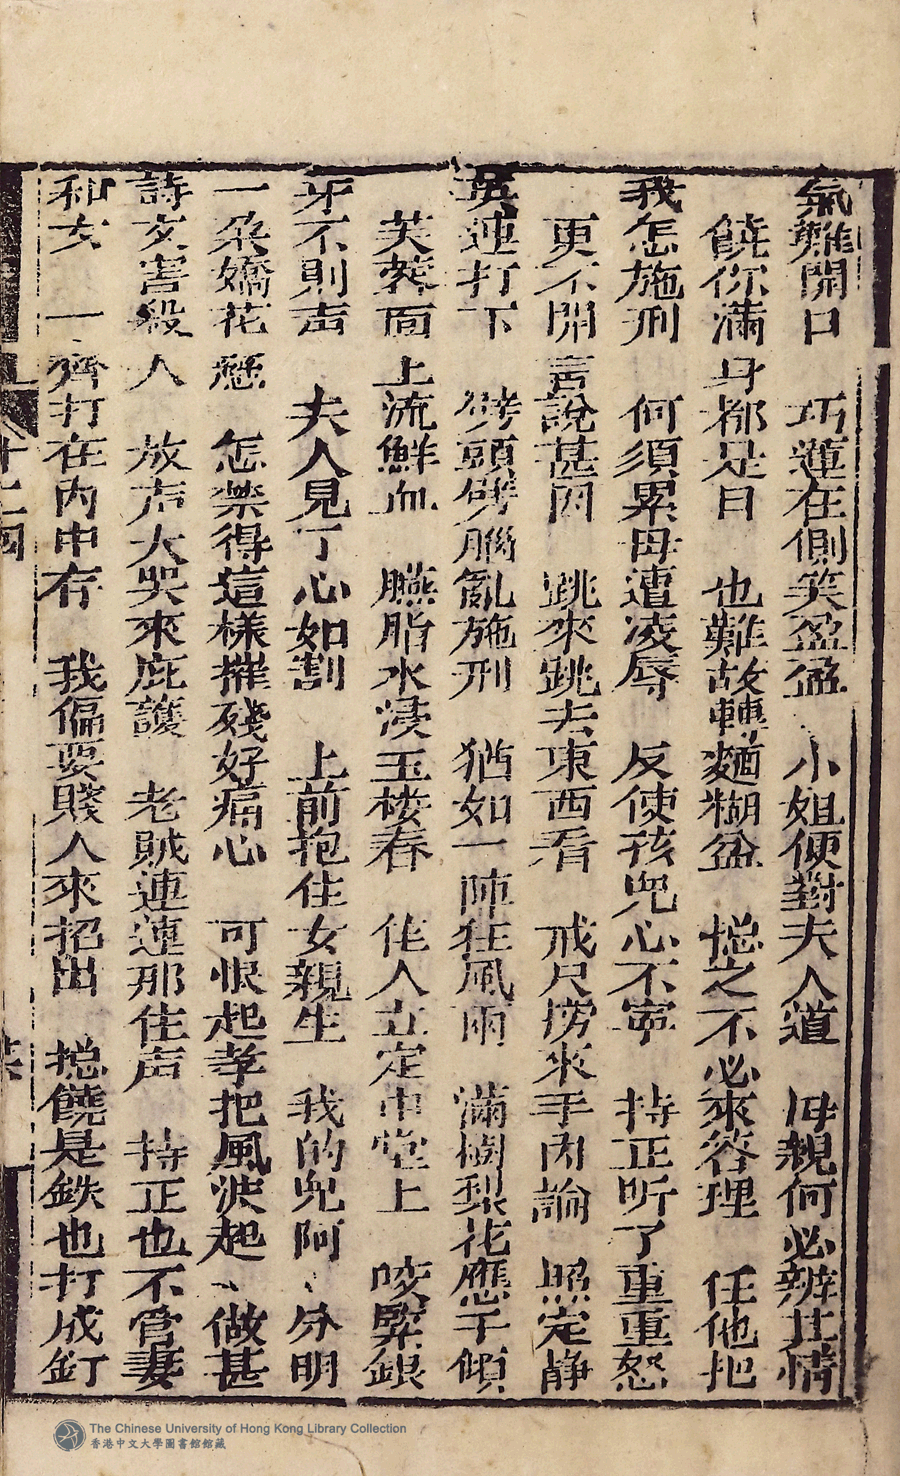 氣難開口　巧蓮在側笑盈盈　小姐便對夫人道　母親何必辨其情
饒你滿身都是口　也難故轉麵糊盆　搃之不必來答理　任他把
我怎施刑　何須累母遭凌辱　反使孩兒心不寧　持正听了重重怒
更不開言說甚因　跳來跳去東西看　戒尺撈來手內論　照定静
英連打下　劈頭劈腦亂施刑　猶如一陣狂風雨　滿樹梨花應手傾
芙蓉面上流鮮血　臙脂水浸玉楼春　佳人立定中堂上　咬緊銀
牙不則声　夫人見了心如割　上前抱住女親生　我的兒阿、分明
一朶嬌花蕊　怎禁得這樣摧殘好痛心　可恨起孝把風波起、做甚
詩文害殺人　放声大哭來庇護　老賊連連那住声　持正也不管妻
和女　一齊打在內中存　我偏要賤人來招出　搃饒是鉄也打成釘
十二回
The Chinese University of Hong Kong Library Collection
香港中文大學圖書館館藏